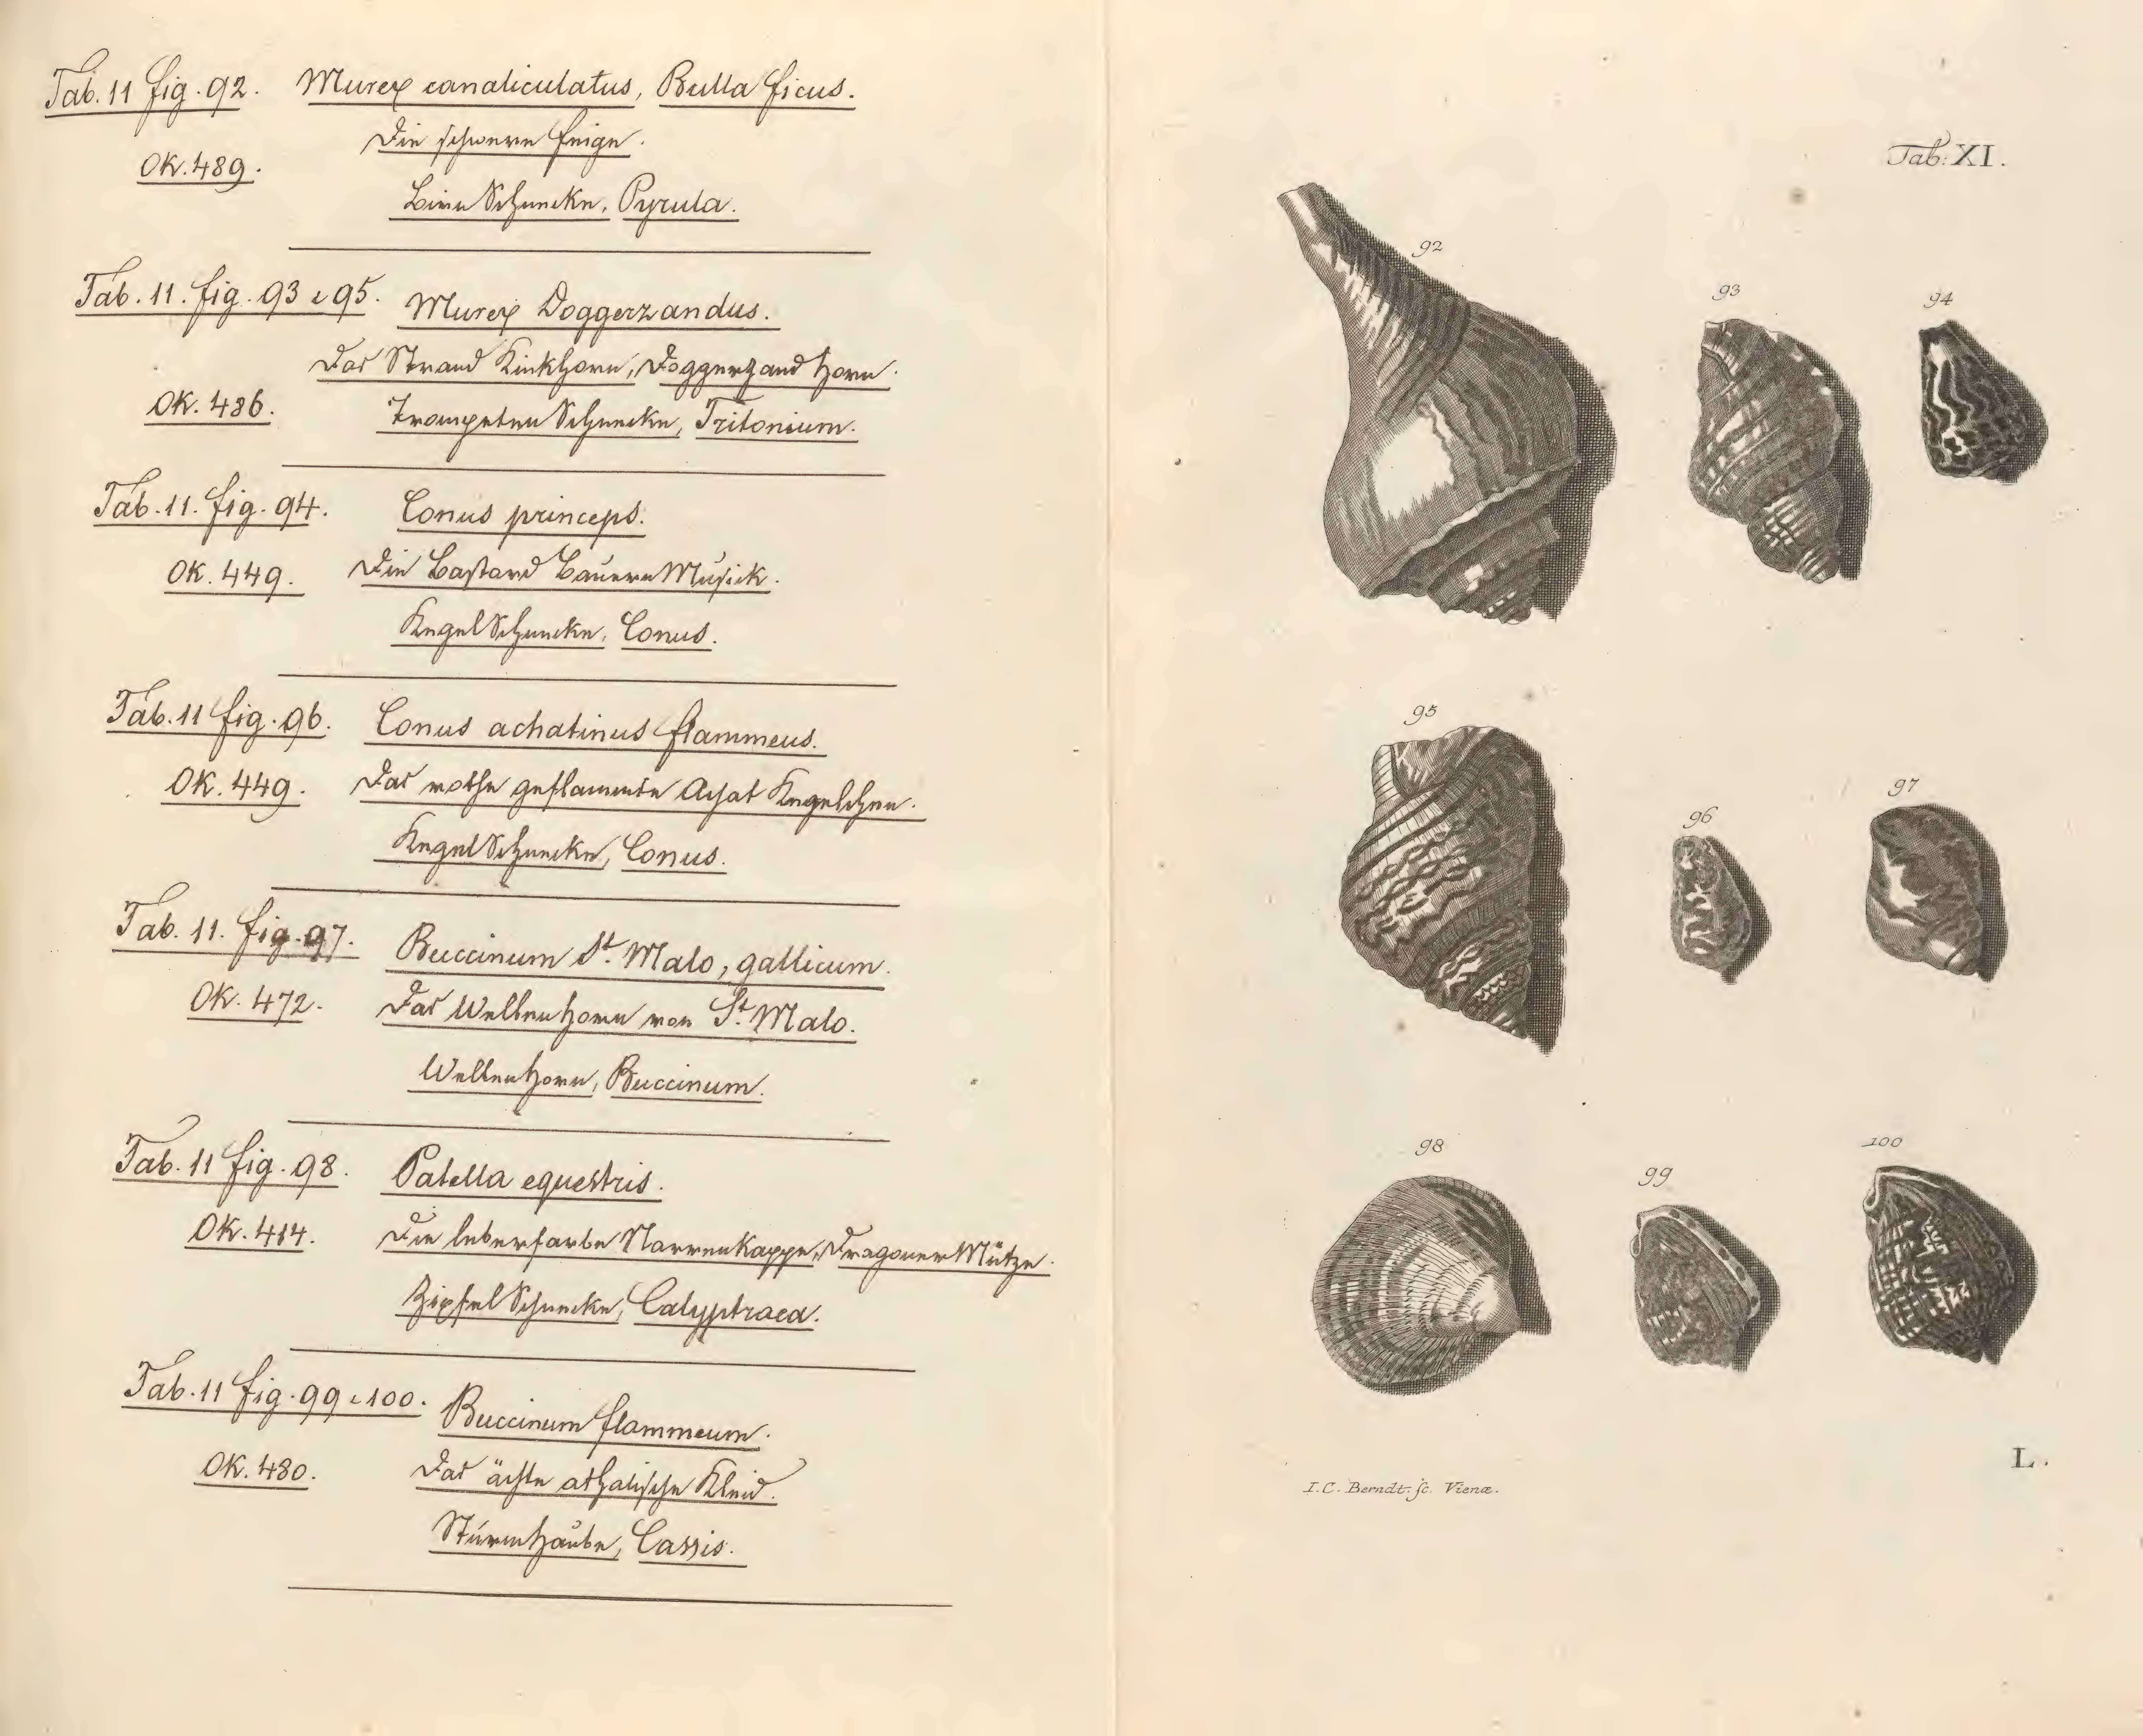 Tab. 11 fig. 92. Murex canaliculatus, Bulla ficus.
Die schwere Feige.
OK. 489.
Birn Schnecke, Pyrula.
Tab. 11. fig. 93 e 95. Murex Doggerzandus.
Das Strand Kinkhorn, Doggerzand Horn.
OK. 486.
Trompeten Schnecke, Tritonium.
Tab. 11. fig. 94. Conus princeps.
OK. 449. Die Bastard Bauern Musick.
Kegel Schnecke, Conus.
Tab. 11 fig. 96. Conus achatinus flammeus.
OK. 449. Das rothe geflammte Achat Kegelchen.
Kegel Schnecke, Conus.
Tab. 11. fig. 97. Buccinum St. Malo, gallicum.
OK. 472. Das Wellenhorn von St. Malo.
Wellenhorn, Buccinum.
Tab. 11 fig. 98. Patella equestris.
OK. 414. Die leberfarbe Narrenkappe, Dragoner Mütze.
Zipfel Schnecke, Calyptraea.
Tab. 11 fig. 99 e 100. Buccinum flammeum.
OK. 480. Das ächte athalische Kleid.
Sturmhaube, Cassis.
Tab: XI.
92
93
94
95
96
97
98
99
100
L.
I. C. Berndt. sc. Vienæ.